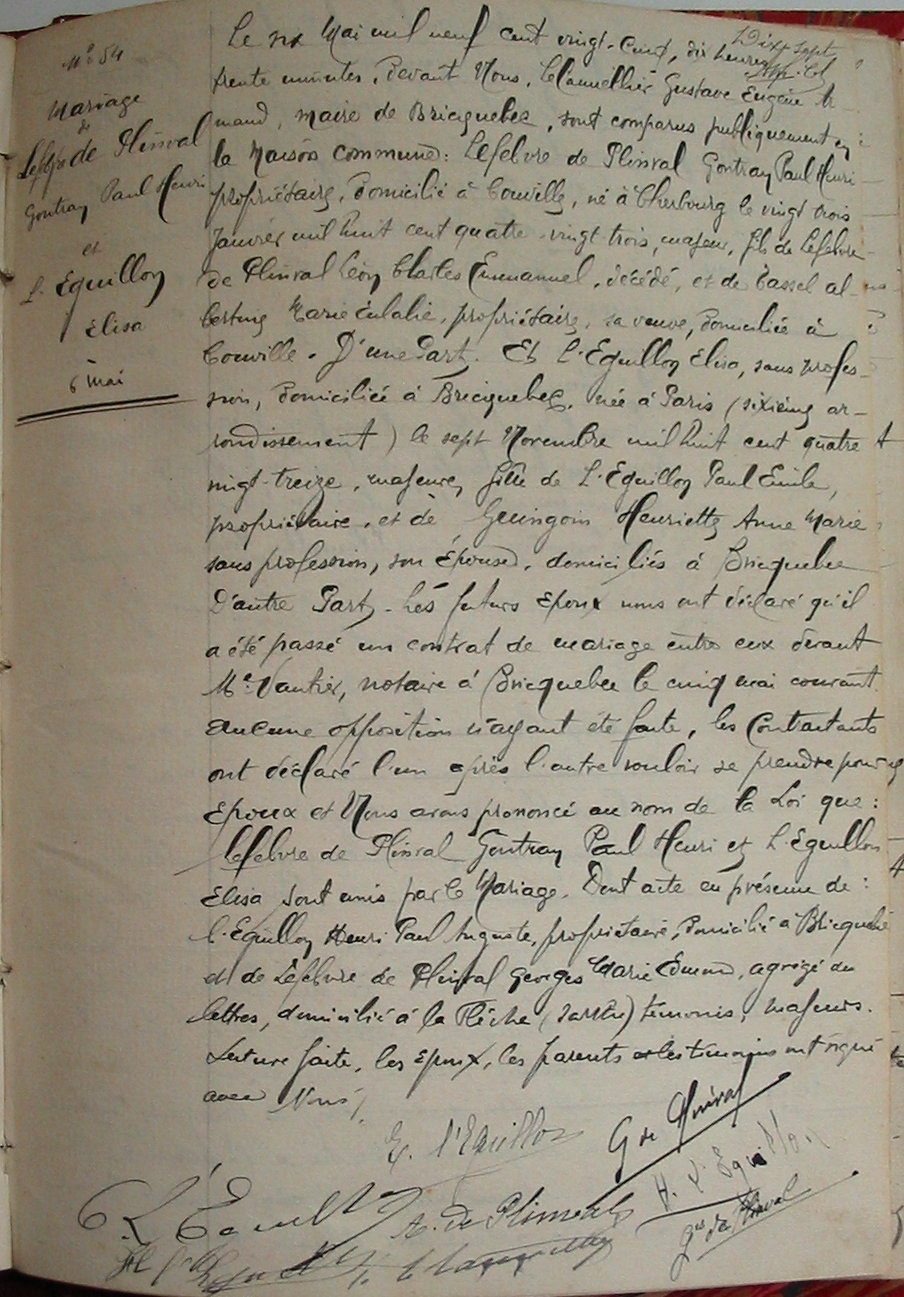 Dix sept
N° 54
Mariage
de
Lefebvre de Plinval
Gontran Paul Henri
et
L'Equillon
Elisa
6 mai
Le six Mai mil neuf cent vingt-cinq, dix heures
trente minutes, Devant Nous, Lecannellier Gustave Eugène Ar-
mand, maire de Bricquebec, sont comparus publiquement en
la Maison commune : Lefebvre de Plinval Gontran Paul Henri
propriétaire, domicilié à Couville, né à Cherbourg le vingt trois
Janvier mil huit cent quatre-vingt trois, majeur, fils de Lefebvre
de Plinval Léon Charles Emmanuel, décédé, et de Cassel Al-
bertine Marie Eulalie, propriétaire, sa veuve, domiciliée à
Couville - D'une Part. Et L'Equillon Elisa, sans profes-
sion, domiciliée à Bricquebec, née à Paris (sixième ar-
rondissement) le sept Novembre mil huit cent quatre
vingt-treize, majeure, fille de L'Equillon Paul Emile,
propriétaire, et de Guingoin Henriette Anne Marie
sans profession, son Epouse, domiciliés à Bricquebec
D'autre Part - Les futurs Epoux nous ont déclaré qu'il
a été passé un contrat de mariage entre eux devant
Me Vautier, notaire à Bricquebec le cinq mai courant.
Aucune opposition n'ayant été faite, les Contractants
ont déclaré l'un après l'autre vouloir se prendre pour
Epoux et Nous avons prononcé au nom de la Loi que :
Lefebvre de Plinval Gontran Paul Henri et L'Equillon
Elisa sont unis par le Mariage. Dont acte en présence de :
L'Equillon Henri Paul Auguste, propriétaire, domicilié à Bricquebec
et de Lefebvre de Plinval Georges Marie Edmond, agrégé des
lettres, domicilié à la Flèche (Sarthe) témoins, majeurs.
Lecture faite, les Epoux, les parents et les témoins ont signé
avec Nous /
E. l'Equillon
G de Plinval
H. L'Equillon
A. de Plinval
Gs de Plinval